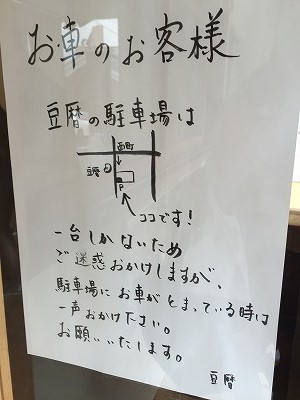 お車のお客様
豆暦の駐車場は
西町
豆暦
P
ココです!
一台しかないため
ご迷惑おかけしますが、
駐車場にお車がとまっている時は
一声おかけ下さい。
お願いいたします。
豆暦